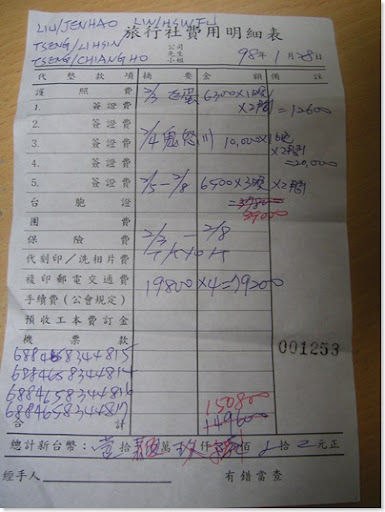 LIU/JENHAO LIN/HSIN FU
旅行社費用明細表
TSENG/LIHSIN
TSENG/CHIANG HO
公司
先生
小姐
98年1月28日
代墊款項 摘要 金額 備註
護照費 2/3 6300×1晚
×2間=12600
1. 簽證費
2. 簽證費
3. 簽證費 2/4 鬼怒川 10,000×1晚
×2間
4. 簽證費 =20,000
5. 簽證費 2/5-2/8 6500×3晚×2間
台胞證 =39800
39000
團費
保險費 2/3 - 2/8
代刻印/洗相片費 T/K/O/T
複印郵電交通費 19800×4=79200
手續費(公會規定)
預收工本費訂金
機票款 001253
6884658344815
6884658344814
6884658344816
6884658344817
150800
合計 149600
總計新台幣:壹拾萬仟佰拾元正
經手人 有錯當查